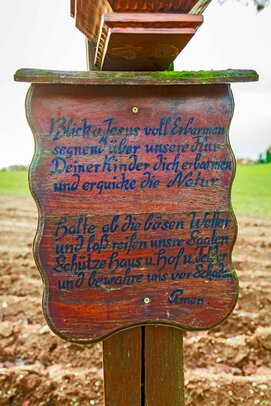 Blick o Jesus voll Erbarmen
segnend über unsre Flur
Deiner Kinder dich erbarmen
und erquicke die Natur
Halte ab die bösen Wetter
und laß reifen unsre Saaten
Schütze Haus u. Hof u. Felder
und bewahre uns vor Schaden
Amen.